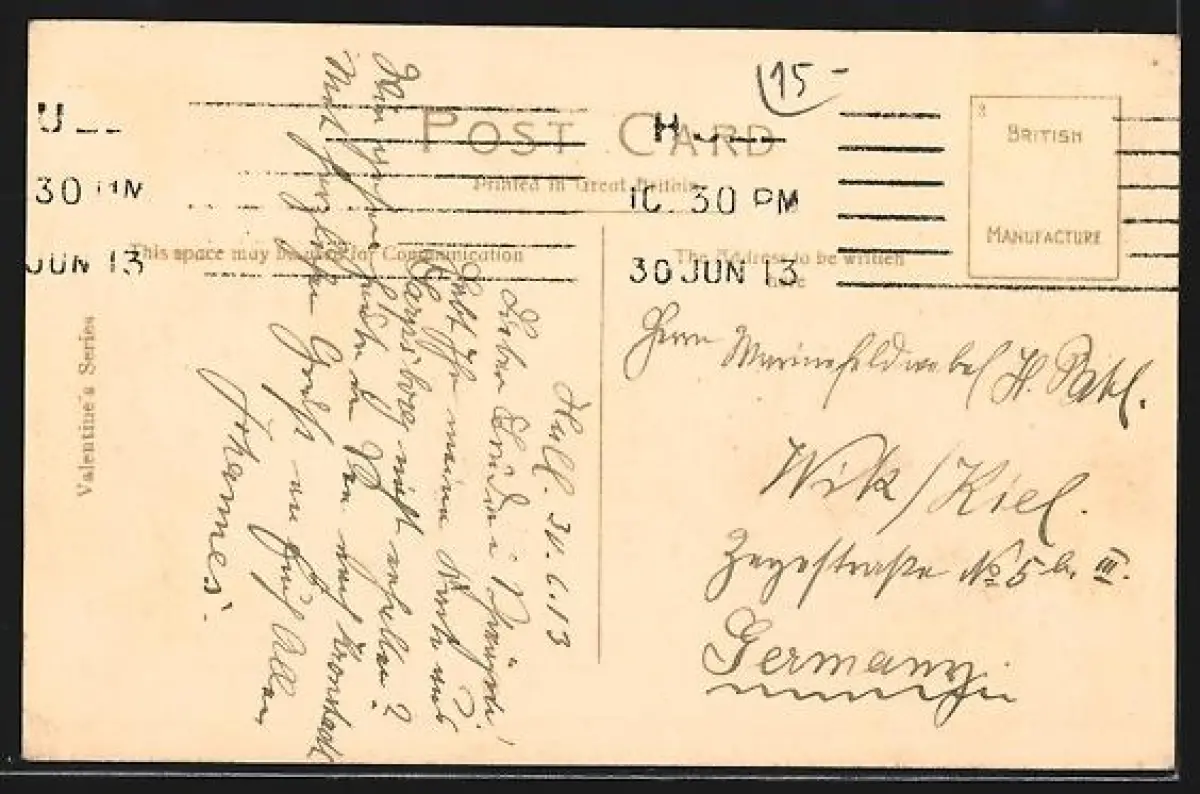 (15-
POST CARD
Printed in Great Britain
BRITISH
MANUFACTURE
This space may be used for Communication
The Address to be written
here
Valentine's Series
U
30 JUN
JUN 13
H
10. 30 PM
30 JUN 13
Herrn Marinefeldwebel H.
Wik/Kiel.
No 5 b. III.
Germany
Hull. 30.6.13
Lieber Bruder
Habt Ihr meine Karte aus
Sarpsborg nicht erhalten?
Wir gehen heute von nach Kronstadt
Mit herzlichen Gruß an Euch Allen
Johannes.